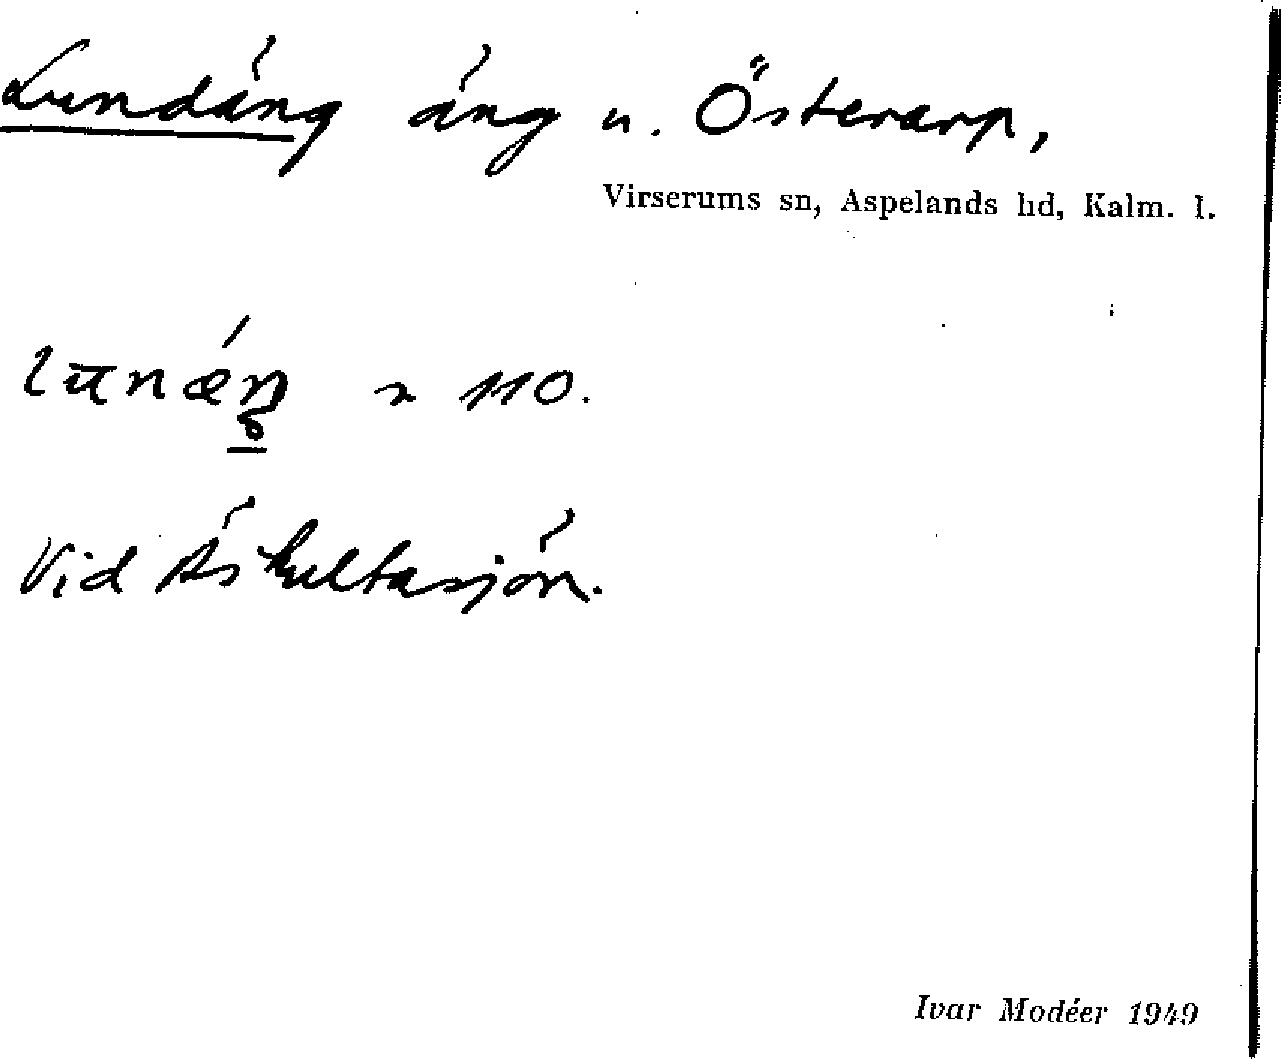 Lundäng äng u. Österarp,
Virserums sn, Aspelands hd, Kalm. l.
110.
Vid Äskultasjön.
Ivar Modéer 1949